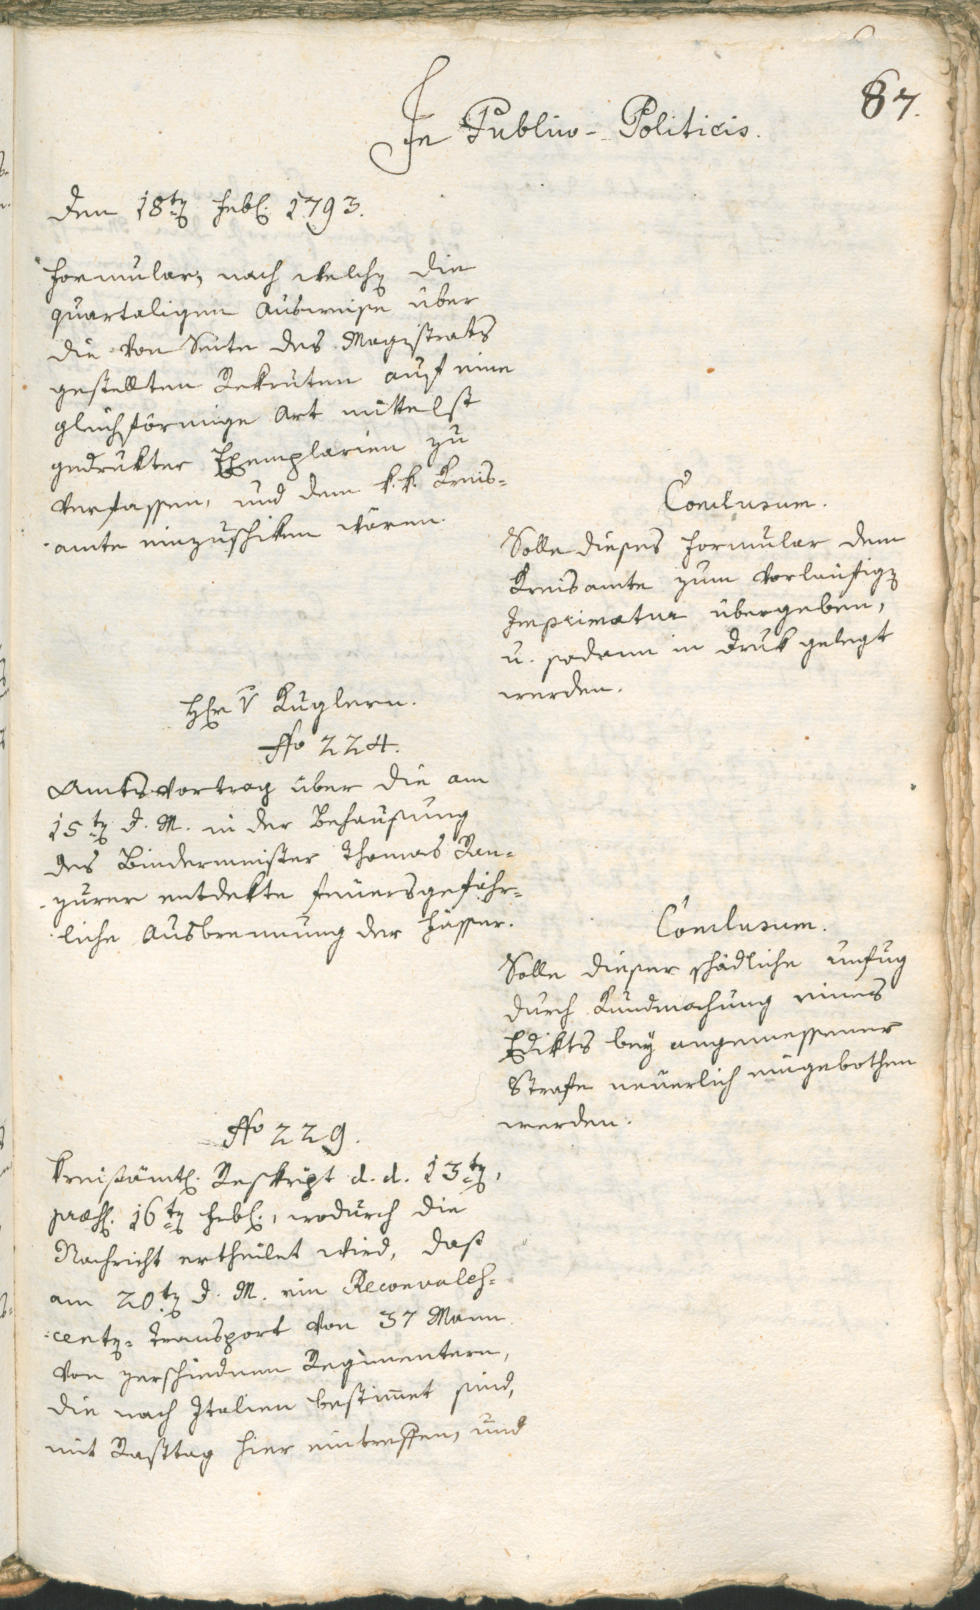 87.
In Publico-Politicis.
den 18ten Febr. 1793.
Formular, nach welchen die
quartaligen Ausweise über
die von Seite des Magistrats
gestellten Rekruten auf eine
gleichförmige Art mittelst
gedrukter Exemplarien zu
verfassen, und dem k. k. Kreis=
amte einzuschiken wären.
Conclusum.
Solle dieses Formular dem
Kreisamte zum vorläufigen
Imprimatur übergeben,
u. sodann in Druk gelegt
werden.
Hr. v Kuglern.
No 224.
Amtsvortrag über die am
15ten d. M. in der Behausung
des Bindermeister Thomas Ran=
zurer entdekte feuersgefähr=
liche Ausbrennung der Fässer.
Conclusum.
Solle dieser schädliche Unfug
durch Kundmachung eines
Edikts bey angemessener
Strafe neuerlich eingebothen
werden.
No 229.
Kreisämtl. Reskript d. d. 13ten,
praes. 16ten Febr., wodurch die
Nachricht ertheilet wird, daß
am 20ten d. M. ein Reconvales=
centen=Transport von 37 Mann
von zerschiednen Regimentern,
die nach Italien bestimmet sind,
mit Rasttag hier eintreffen, und